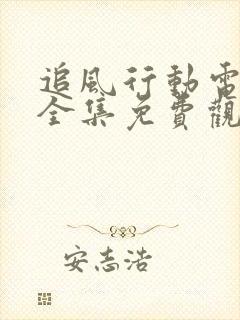 追风行動電
全集免費觀
安志浩